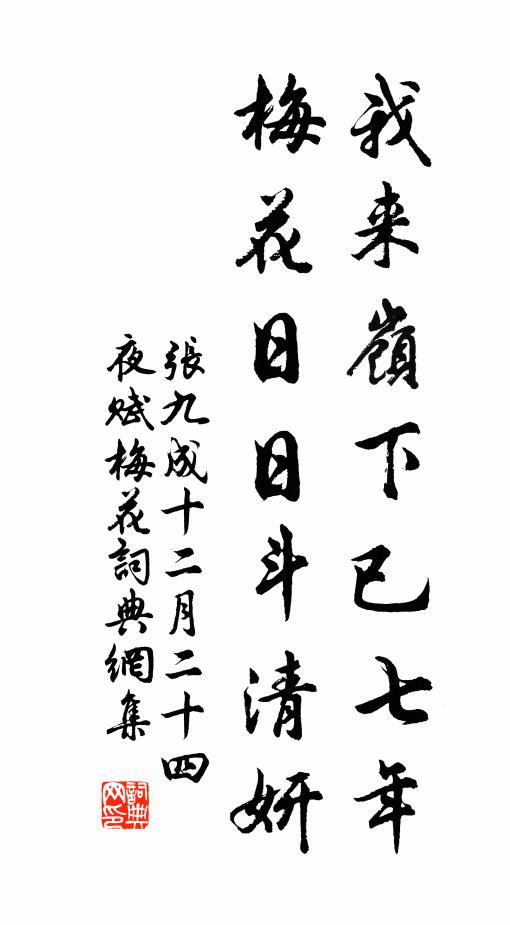 我来嶺下已七年
梅花日日斗清妍
張九成十二月二十四
夜赋梅花詞典網集
詞典
网印